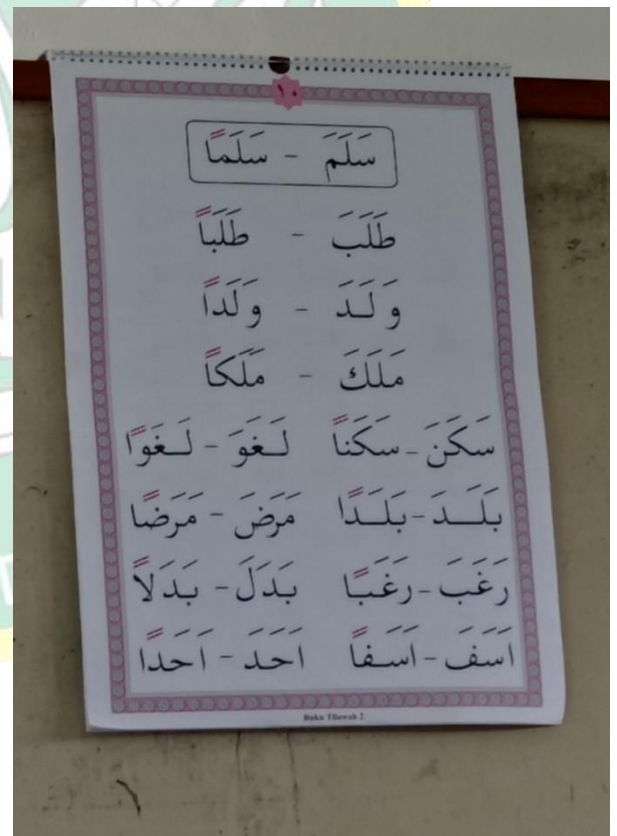 ١٠
سَلَمَ - سَلَمًا
طَلَبَ - طَلَبًا
وَلَدَ - وَلَدًا
مَلَكَ - مَلَكًا
سَكَنَ - سَكَنًا لَغَوَ - لَغَوًا
بَلَدَ - بَلَدًا مَرَضَ - مَرَضًا
رَغَبَ - رَغَبًا بَدَلَ - بَدَلًا
اَسَفَ - اَسَفًا اَحَدَ - اَحَدًا
Buku Tilawah 2